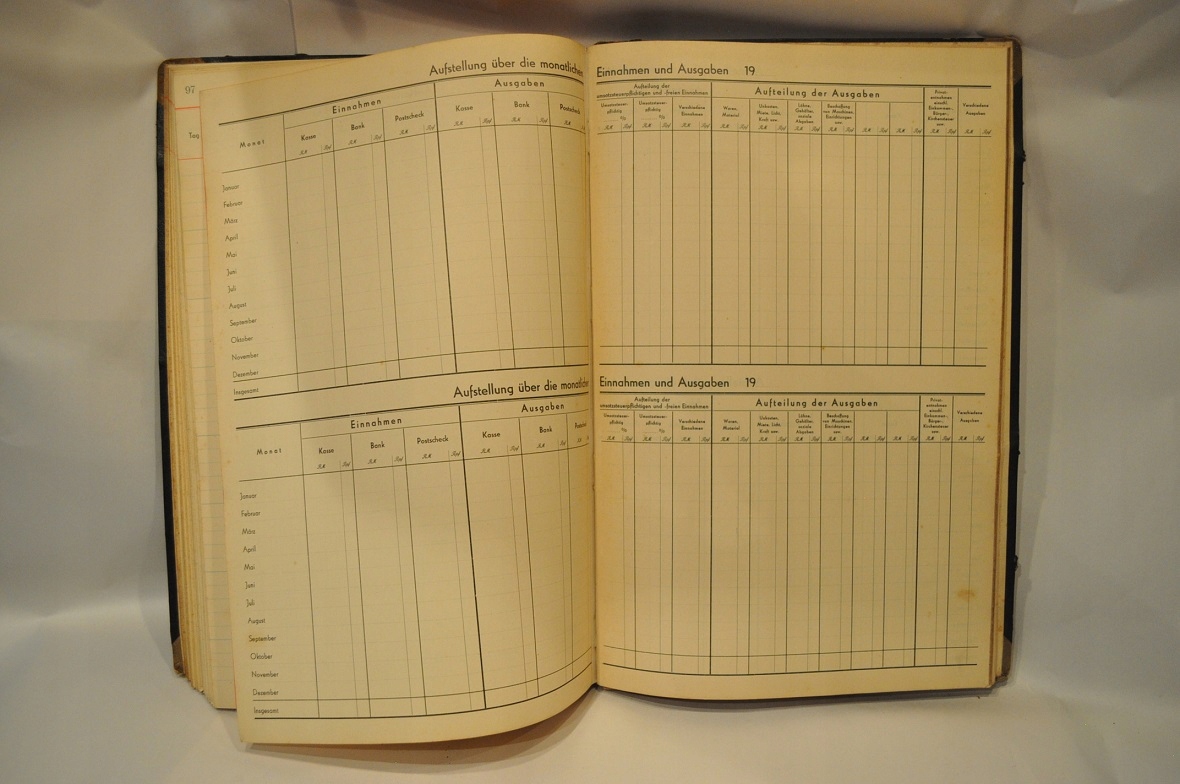 97
Tag
Aufstellung über die monatlichen Einnahmen und Ausgaben 19
Einnahmen
Ausgaben
Monat
Kasse
Bank
Postscheck
Kasse
Bank
Postscheck
RM Rpf RM Rpf RM Rpf RM Rpf RM Rpf RM
Januar
Februar
März
April
Mai
Juni
Juli
August
September
Oktober
November
Dezember
Insgesamt
Aufteilung der
umsatzsteuerpflichtigen und -freien Einnahmen
Aufteilung der Ausgaben
Umsatzsteuer-
pflichtig
%
Umsatzsteuer-
pflichtig
%
Verschiedene
Einnahmen
Waren,
Material
Unkosten,
Miete, Licht,
Kraft usw.
Löhne,
Gehälter,
soziale
Abgaben
Beschaffung
von Maschinen,
Einrichtungen
usw.
Privat-
entnahmen
einschl.
Einkommen-
Bürger-,
Kirchensteuer
usw.
Verschiedene
Ausgaben
RM Rpf RM Rpf RM Rpf RM Rpf RM Rpf RM Rpf RM Rpf RM Rpf RM Rpf RM Rpf RM Rpf
Aufstellung über die monatlichen Einnahmen und Ausgaben 19
Einnahmen
Ausgaben
Monat
Kasse
Bank
Postscheck
Kasse
Bank
RM Rpf RM Rpf RM Rpf RM Rpf RM Rpf RM
Januar
Februar
März
April
Mai
Juni
Juli
August
September
Oktober
November
Dezember
Insgesamt
Aufteilung der
umsatzsteuerpflichtigen und -freien Einnahmen
Aufteilung der Ausgaben
Umsatzsteuer-
pflichtig
%
Umsatzsteuer-
pflichtig
%
Verschiedene
Einnahmen
Waren,
Material
Unkosten,
Miete, Licht,
Kraft usw.
Löhne,
Gehälter,
soziale
Abgaben
Beschaffung
von Maschinen,
Einrichtungen
usw.
Privat-
entnahmen
einschl.
Einkommen-
Bürger-,
Kirchensteuer
usw.
Verschiedene
Ausgaben
RM Rpf RM Rpf RM Rpf RM Rpf RM Rpf RM Rpf RM Rpf RM Rpf RM Rpf RM Rpf RM Rpf